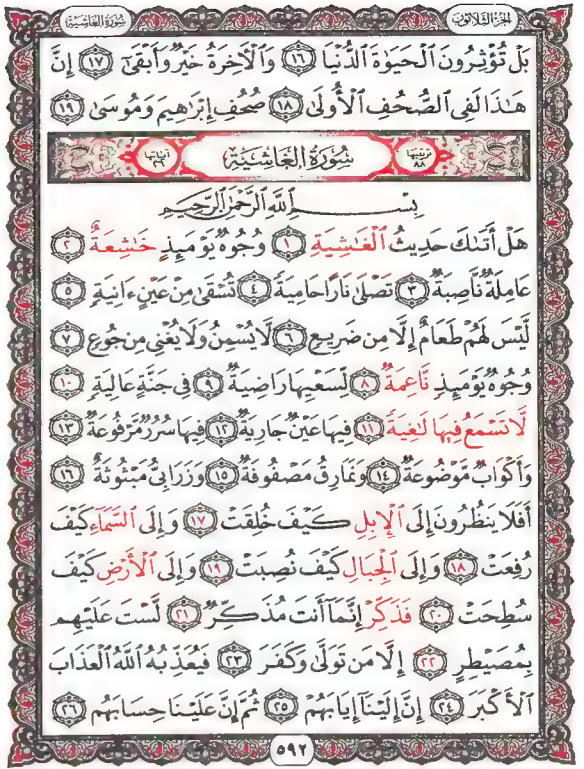 الجزء الثلاثون سورة الغاشية
بَلْ تُؤْثِرُونَ ٱلْحَيَوٰةَ ٱلدُّنْيَا ١٦ وَٱلْءَاخِرَةُ خَيْرٌ وَأَبْقَىٰٓ ١٧ إِنَّ
هَـٰذَا لَفِى ٱلصُّحُفِ ٱلْأُولَىٰ ١٨ صُحُفِ إِبْرَٰهِيمَ وَمُوسَىٰ ١٩
ترتيبها ٨٨ سُورَةُ الْغَاشِيَةِ آياتها ٢٦
بِسْمِ ٱللَّهِ ٱلرَّحْمَـٰنِ ٱلرَّحِيمِ
هَلْ أَتَىٰكَ حَدِيثُ ٱلْغَـٰشِيَةِ ١ وُجُوهٌ يَوْمَئِذٍ خَـٰشِعَةٌ ٢
عَامِلَةٌ نَّاصِبَةٌ ٣ تَصْلَىٰ نَارًا حَامِيَةً ٤ تُسْقَىٰ مِنْ عَيْنٍ ءَانِيَةٍ ٥
لَّيْسَ لَهُمْ طَعَامٌ إِلَّا مِن ضَرِيعٍ ٦ لَّا يُسْمِنُ وَلَا يُغْنِى مِن جُوعٍ ٧
وُجُوهٌ يَوْمَئِذٍ نَّاعِمَةٌ ٨ لِّسَعْيِهَا رَاضِيَةٌ ٩ فِى جَنَّةٍ عَالِيَةٍ ١٠
لَّا تَسْمَعُ فِيهَا لَـٰغِيَةً ١١ فِيهَا عَيْنٌ جَارِيَةٌ ١٢ فِيهَا سُرُرٌ مَّرْفُوعَةٌ ١٣
وَأَكْوَابٌ مَّوْضُوعَةٌ ١٤ وَنَمَارِقُ مَصْفُوفَةٌ ١٥ وَزَرَابِىُّ مَبْثُوثَةٌ ١٦
أَفَلَا يَنظُرُونَ إِلَى ٱلْإِبِلِ كَيْفَ خُلِقَتْ ١٧ وَإِلَى ٱلسَّمَآءِ كَيْفَ
رُفِعَتْ ١٨ وَإِلَى ٱلْجِبَالِ كَيْفَ نُصِبَتْ ١٩ وَإِلَى ٱلْأَرْضِ كَيْفَ
سُطِحَتْ ٢٠ فَذَكِّرْ إِنَّمَآ أَنتَ مُذَكِّرٌ ٢١ لَّسْتَ عَلَيْهِم
بِمُصَيْطِرٍ ٢٢ إِلَّا مَن تَوَلَّىٰ وَكَفَرَ ٢٣ فَيُعَذِّبُهُ ٱللَّهُ ٱلْعَذَابَ
ٱلْأَكْبَرَ ٢٤ إِنَّ إِلَيْنَآ إِيَابَهُمْ ٢٥ ثُمَّ إِنَّ عَلَيْنَا حِسَابَهُم ٢٦
٥٩٢